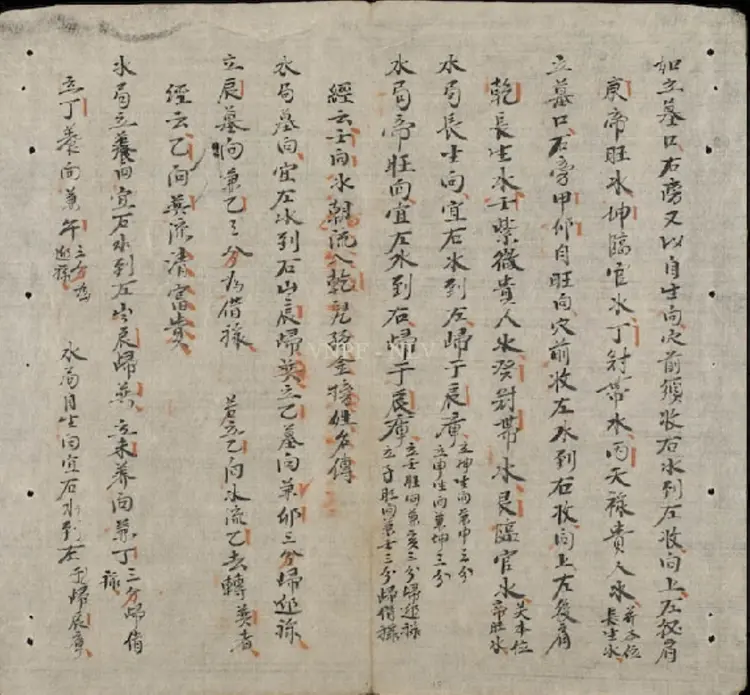 如立墓口右旁又以自生向穴前須收右水到左收向上左
庚帝旺水坤臨官水丁冠帶水丙天祿貴人水 長生水
立墓口右旁甲卯自旺向穴前收左水到右收向上左
乾長生水壬紫微貴人水癸冠帶水艮臨官水 本位帝旺水
水局長生向宜右水到左歸于辰庫 立坤生向兼申三分 立申生向兼坤三分
水局帝旺向宜左水到右歸于辰庫 立壬旺向兼亥三分歸 立子旺向兼壬三分歸借祿
經云壬向水朝流入乾
水局墓向宜左水到右出辰歸 立乙墓向兼卯三分歸
立辰墓向兼乙三分為借祿 若立乙向水流乙去轉
經云乙向 流清富貴
水局立養向宜右水到左出辰歸 立未養向兼丁三分歸借祿
立丁養向兼午三分為 水局自生向宜右水到左 歸辰庫
VNPF - NLV